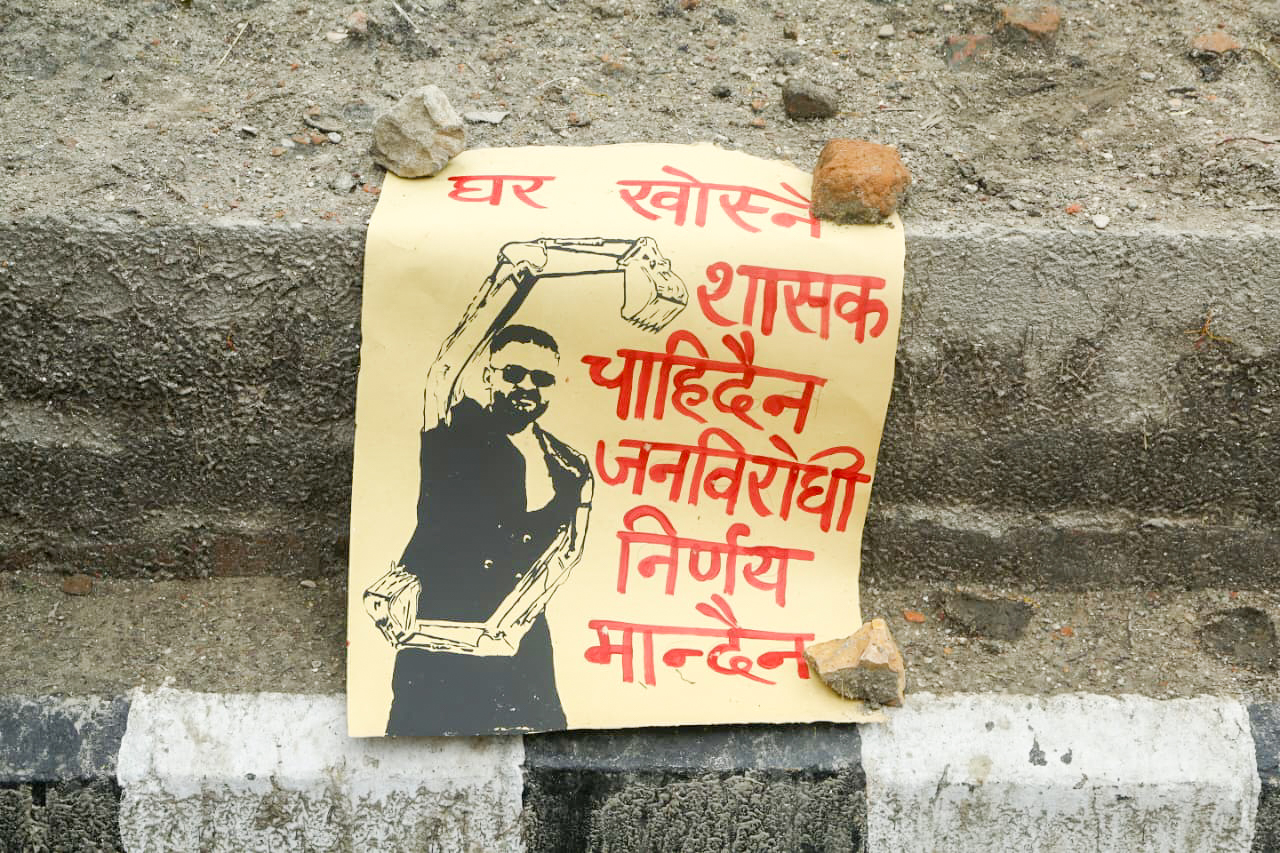 घर खोस्ने
शासक
चाहिदैन
जनविरोधी
निर्णय
मान्दैन